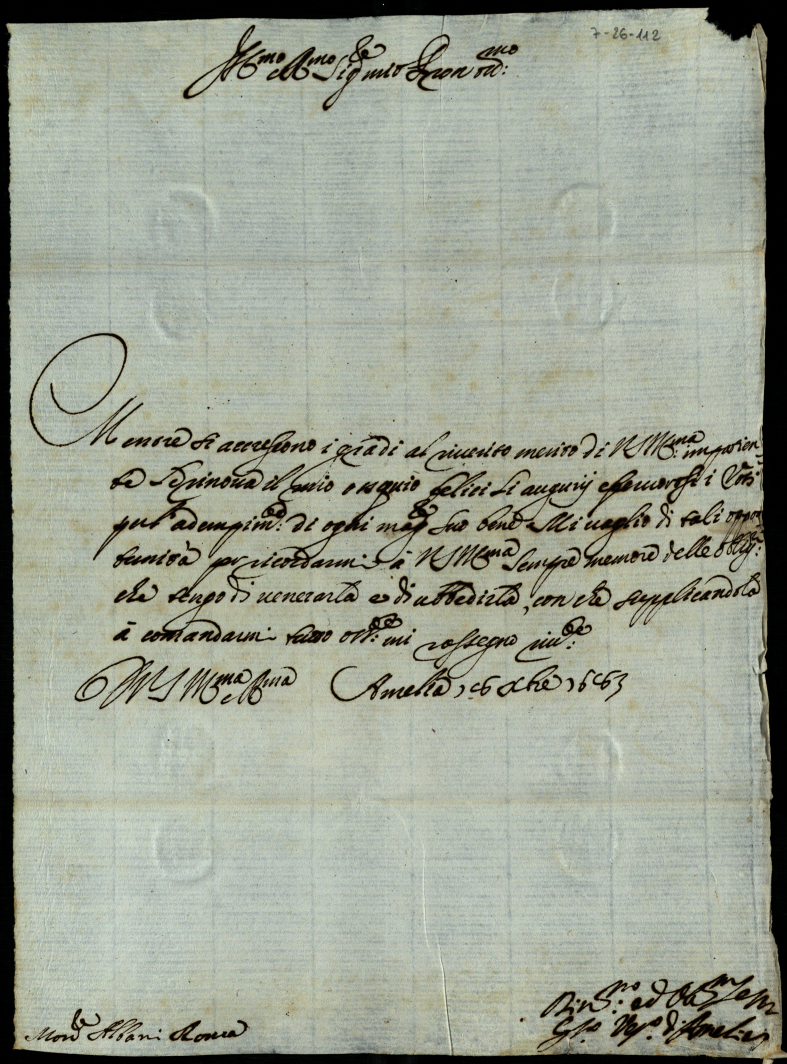 7-26-112
Ill.mo e R.mo Sig.re mio Pron ss.mo
Mentre si accrescono i gradi al riverito merito di V S Ill.ma impazien
te si rinova il mio ossequio felici li augurij e fervorosi i Voti
per l'adempim.to di ogni magg.r suo bene. Mi vaglio di tali oppor
tunità per ricordarmi à V S Ill.ma sempre memore delle oblig.ni
che tengo di venerarla e di ubbedirla, con che supplicandola
à comandarmi mi rassegno
Di V S Ill.ma e R.ma Amelia 16 Xbre 1663
Div.mo ed Obl.mo Ser
Vesc.o di Amelia
Mons.re Albani Roma